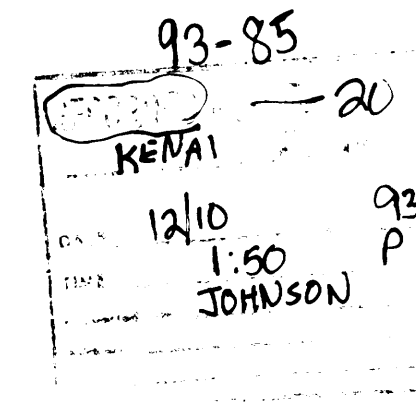 93-85
— 20
KENAI
12/10 93
TIME 1:50 P
JOHNSON